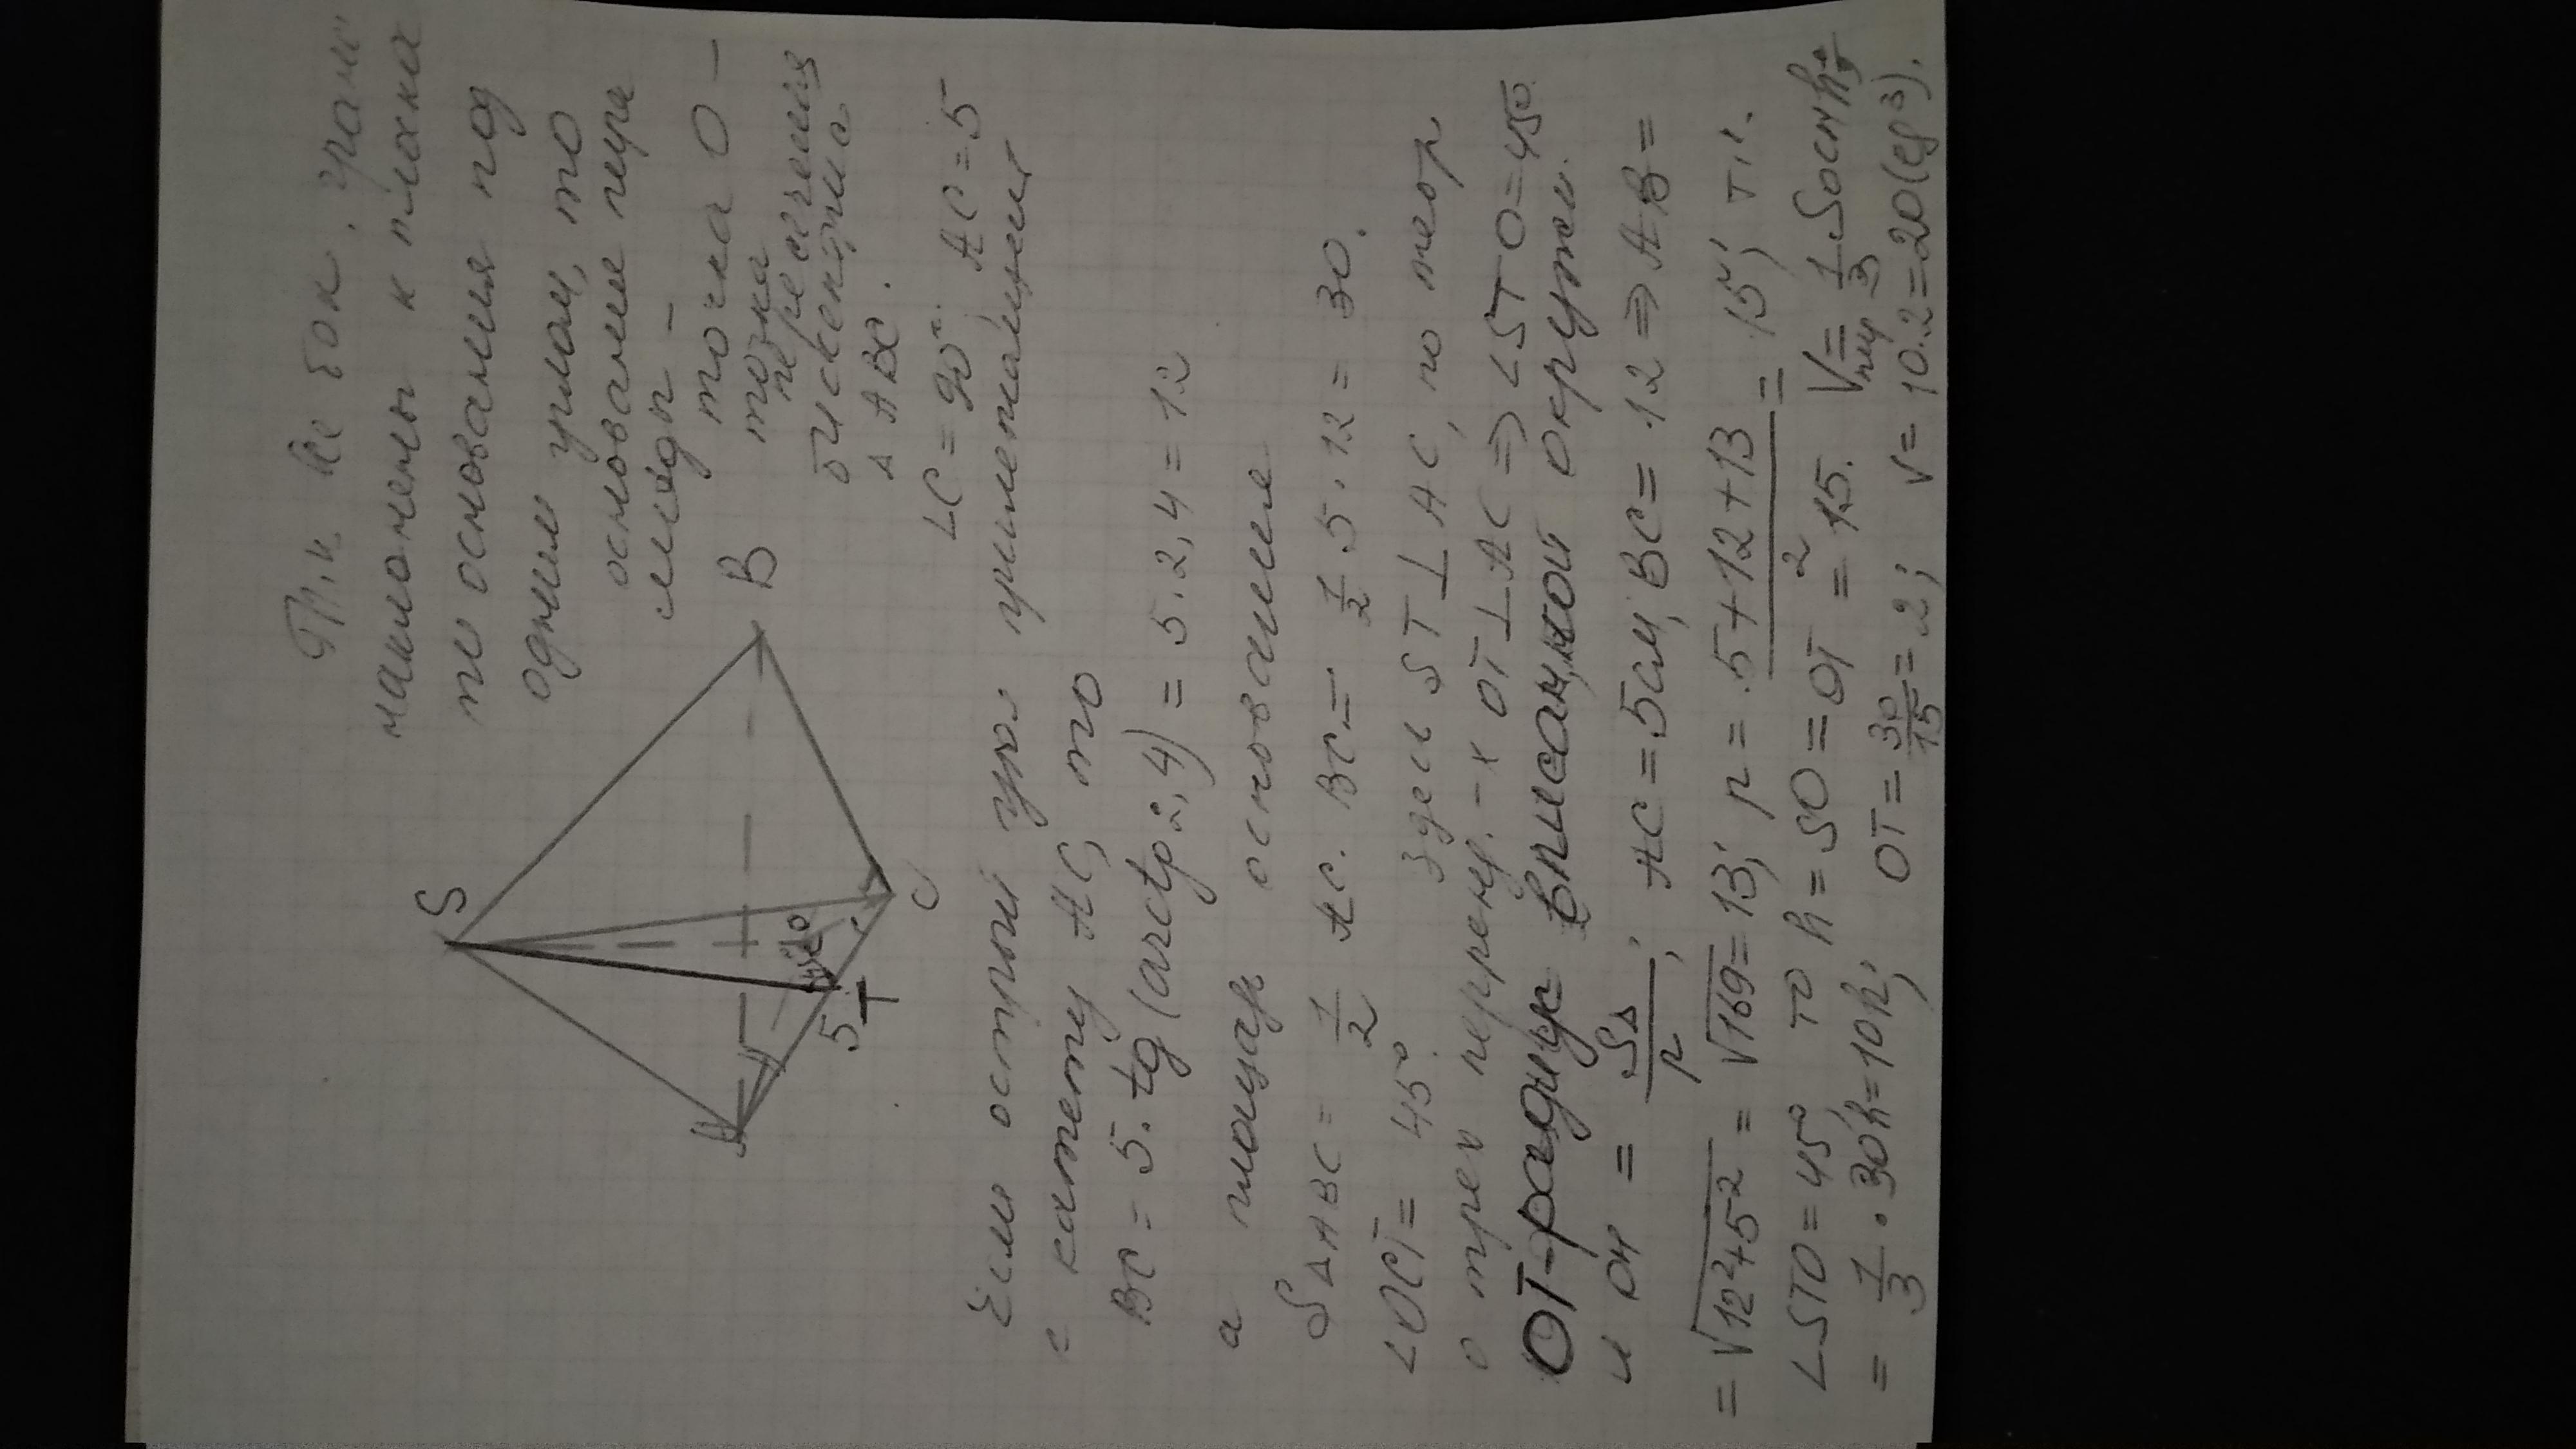 Т.к. все бок. грани
наклонены к плоскос
ти основания под
одним углом, то
основание пира
миды –
точка О –
точка
пересечения
биссектрис
Δ ABC.
S
A
B
C
T
5
45°
О
∠C = 90°. AC = 5
Если острый угол прилежащий
к катету AC, то
BC = 5 · tg (arctg 2,4) = 5 · 2,4 = 12
а площадь основание
S Δ ABC = 1/2 AC · BC = 1/2 · 5 · 12 = 30.
∠OCT = 45°. Здесь ST ⊥ AC, по теор
о трех перпенд.-х OT ⊥ AC ⇒ ∠STO = 45°.
OT – радиус вписанной окружн.
и он = SΔ/p; AC = 5см, BC = 12 ⇒ AB =
= √12²+5² = √169 = 13; p = 5+12+13/2 = 15; т.к.
∠STO = 45°, то h = SO = OT = 15. Vпир = 1/3 Sосн h =
= 1/3 · 30h = 10h; OT = 30/15 = 2; V = 10 · 2 = 20 (ед³).